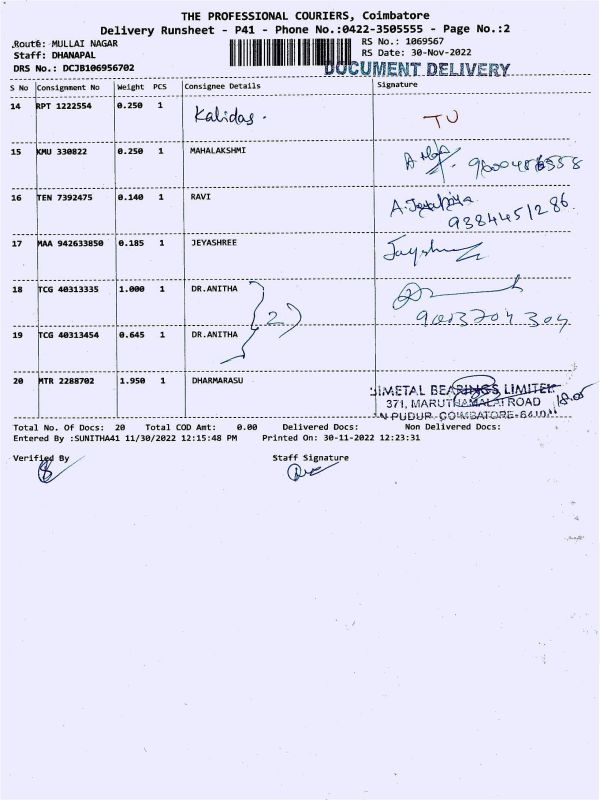 THE PROFESSIONAL COURIERS, Coimbatore
Delivery Runsheet - P41 - Phone No.:0422-3505555 - Page No.:2
Route: MULLAI NAGAR RS No.: 1069567
Staff: DHANAPAL RS Date: 30-Nov-2022
DRS No.: DCJB106956702 DOCUMENT DELIVERY
S No Consignment No Weight PCS Consignee Details Signature
14 RPT 1222554 0.250 1 Kalidas. TU
15 KMU 330822 0.250 1 MAHALAKSHMI
16 TEN 7392475 0.140 1 RAVI
9384451286.
17 MAA 942633850 0.185 1 JEYASHREE
18 TCG 40313335 1.000 1 DR.ANITHA
2
19 TCG 40313454 0.645 1 DR.ANITHA
20 MTR 2288702 1.950 1 DHARMARASU
BEARINGS LIMITED
371, MARUTHAMALAI ROAD
PUDUR, COIMBATORE
Total No. Of Docs: 20 Total COD Amt: 0.00 Delivered Docs: Non Delivered Docs:
Entered By :SUNITHA41 11/30/2022 12:15:48 PM Printed On: 30-11-2022 12:23:31
Verified By Staff Signature